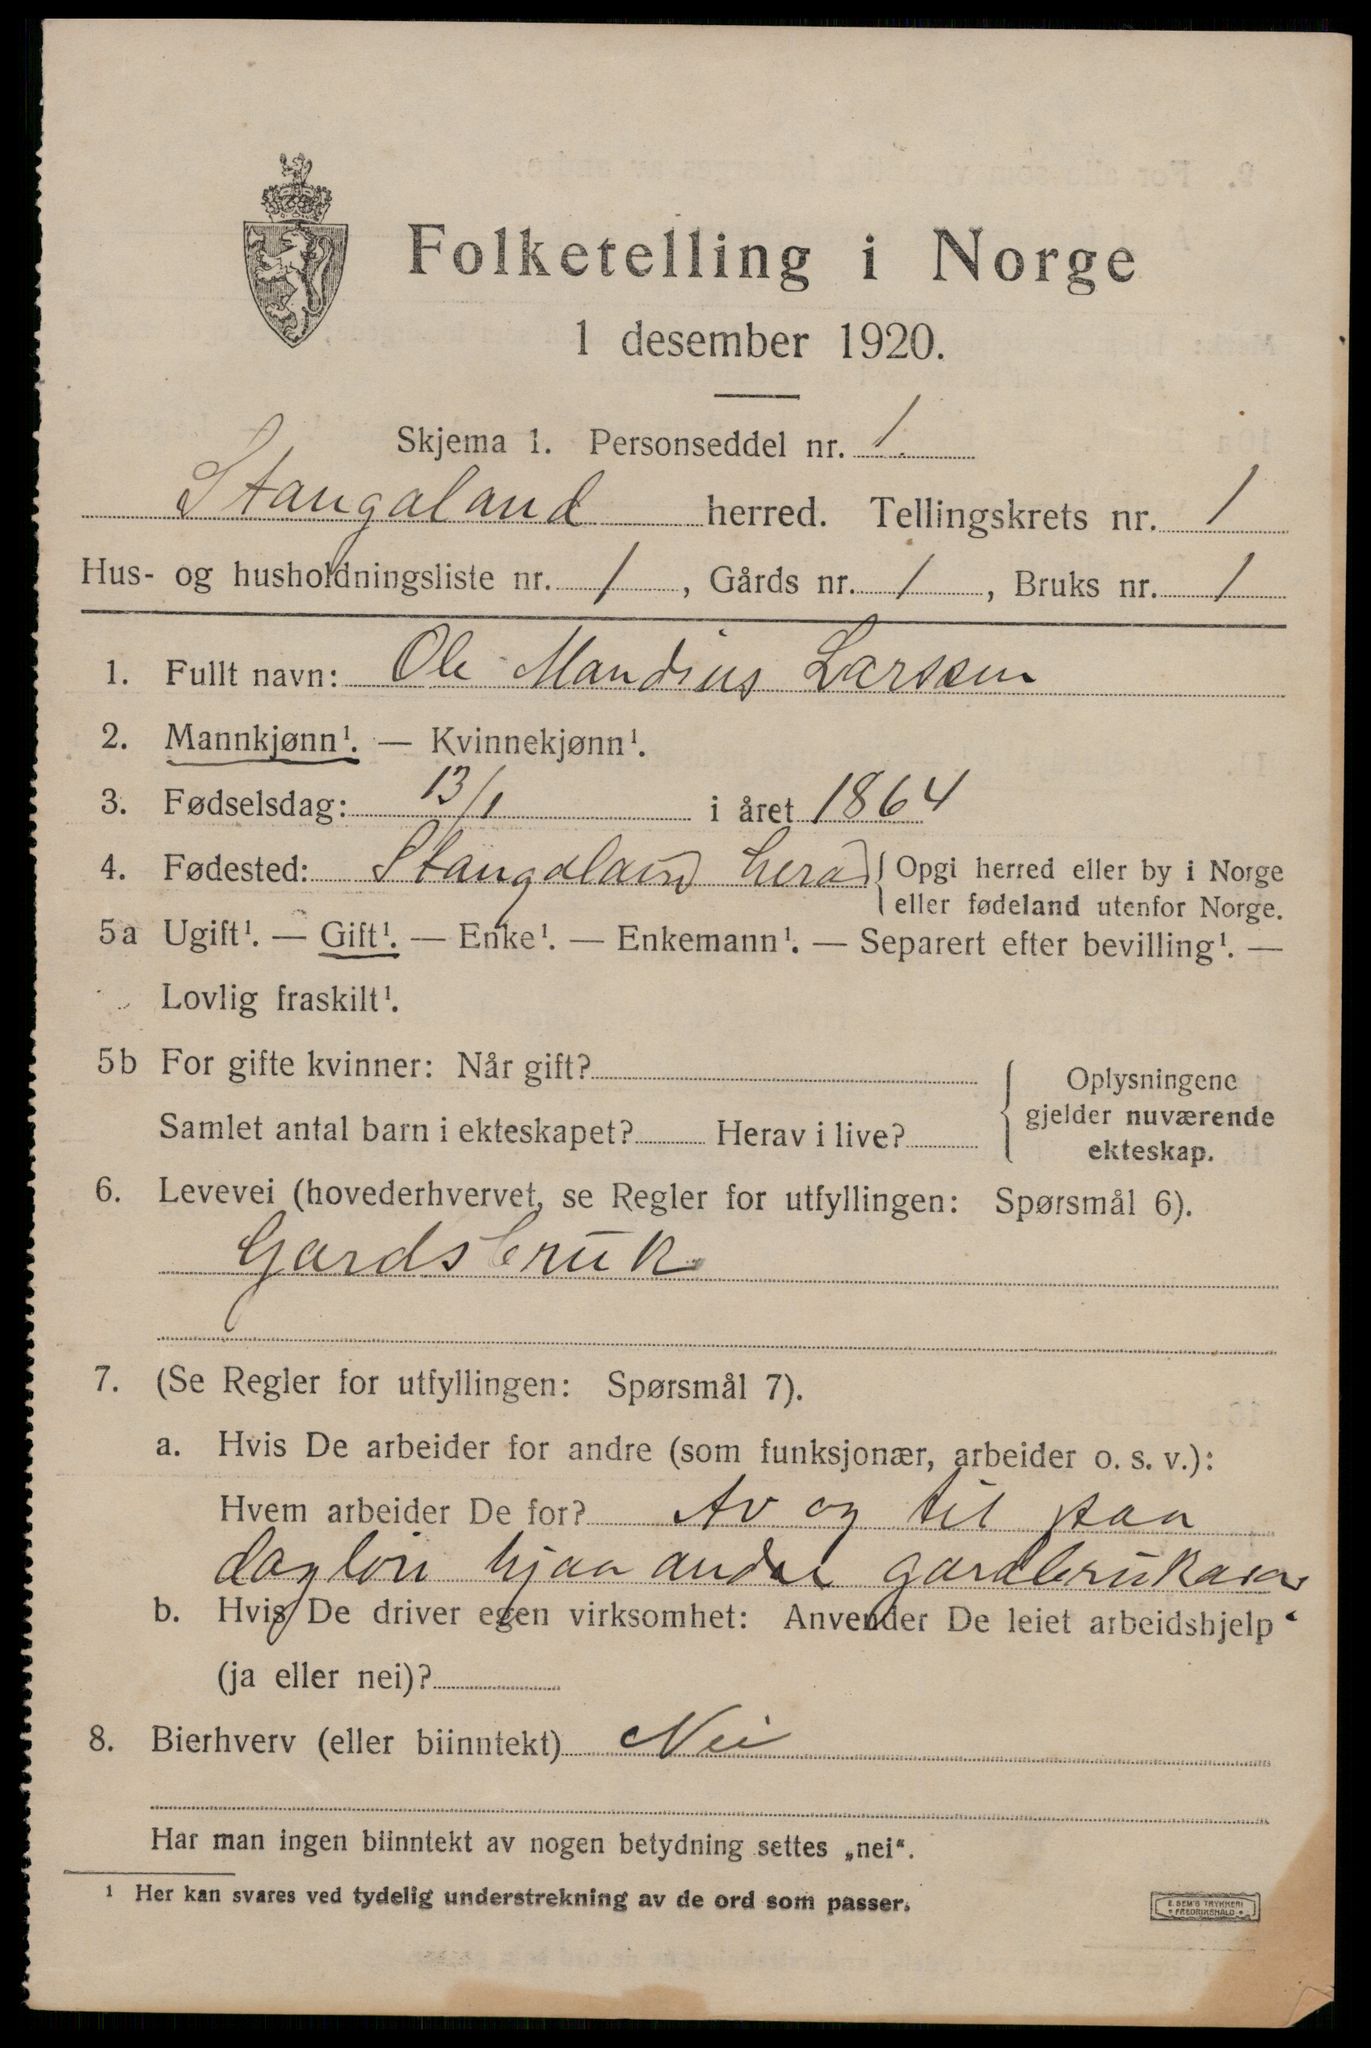 Folketelling i Norge
1 desember 1920.
Skjema 1. Personseddel nr. 1.
Stangaland herred. Tellingskrets nr. 1
Hus- og husholdningsliste nr. 1, Gårds nr. 1, Bruks nr. 1
1. Fullt navn: Ole Mandius Larssen
2. Mannkjønn¹. — Kvinnekjønn¹.
3. Fødselsdag: 13/1 i året 1864
4. Fødested: Stangaland herad { Opgi herred eller by i Norge
eller fødeland utenfor Norge.
5a Ugift¹. — Gift¹. — Enke¹. — Enkemann¹. — Separert efter bevilling¹. —
Lovlig fraskilt¹.
5b For gifte kvinner: Når gift?
Samlet antal barn i ekteskapet? Herav i live?
{ Oplysningene
gjelder nuværende
ekteskap.
6. Levevei (hovederhvervet, se Regler for utfyllingen: Spørsmål 6).
Gardsbruk
7. (Se Regler for utfyllingen: Spørsmål 7).
a. Hvis De arbeider for andre (som funksjonær, arbeider o. s. v.):
Hvem arbeider De for? Av og til paa
dagløn hjaa andre gardbrukarar
b. Hvis De driver egen virksomhet: Anvender De leiet arbeidshjelp
(ja eller nei)?
8. Bierhverv (eller biinntekt) Nei
Har man ingen biinntekt av nogen betydning settes „nei“.
¹ Her kan svares ved tydelig understrekning av de ord som passer.
E. SEM'S TRYKKERI
• FREDRIKSHALD •